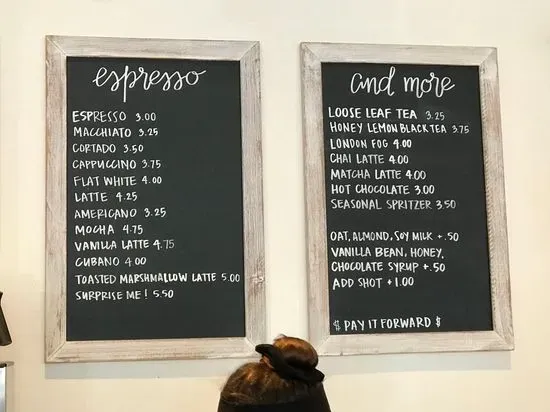 espresso
ESPRESSO 3.00
MACCHIATO 3.25
CORTADO 3.50
CAPPUCCINO 3.75
FLAT WHITE 4.00
LATTE 4.25
AMERICANO 3.25
MOCHA 4.75
VANILLA LATTE 4.75
CUBANO 4.00
TOASTED MARSHMALLOW LATTE 5.00
SURPRISE ME! 5.50
and more
LOOSE LEAF TEA 3.25
HONEY LEMON BLACK TEA 3.75
LONDON FOG 4.00
CHAI LATTE 4.00
MATCHA LATTE 4.00
HOT CHOCOLATE 3.00
SEASONAL SPRITZER 3.50
OAT, ALMOND, SOY MILK +.50
VANILLA BEAN, HONEY,
CHOCOLATE SYRUP +.50
ADD SHOT +1.00
$ PAY IT FORWARD $